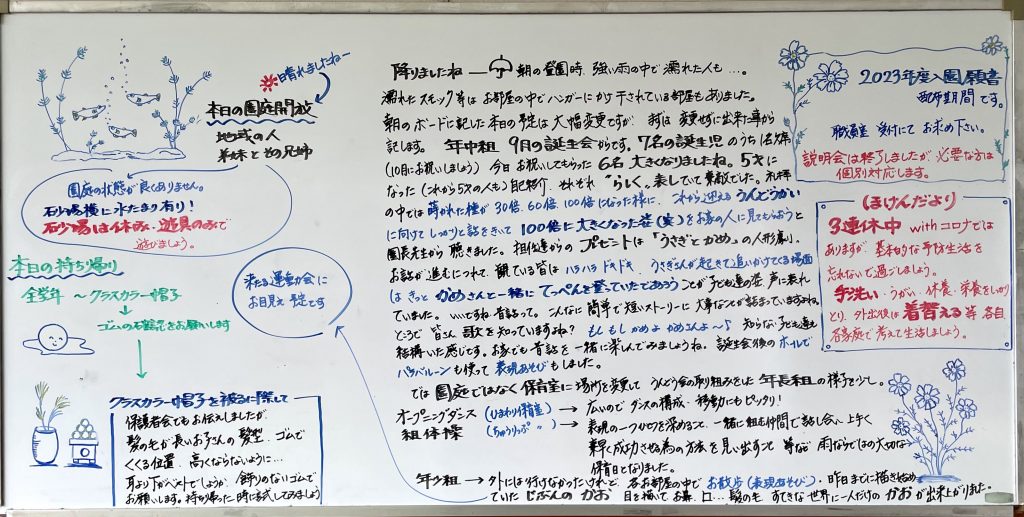 晴れましたねー
本日の園庭開放
地域の人
弟妹とその兄姉
園庭の状態が良くありません。
砂場横に水たまり有り!
砂場は休み、遊具のみで
遊びましょう。
本日の持ち帰り
全学年 ～クラスカラー帽子
ゴムの確認をお願いします
来たる運動会に
お目見え予定です
クラスカラー帽子を被るに際して
保護者会でもお伝えしましたが
髪の毛が長いお子さんの髪型、ゴムで
くくる位置、高くならないように…
耳より下がベストでしょうか、飾りのないゴムで
お願いします。持ち帰った時に試してみましょう
降りましたね ― 朝の登園時、強い雨の中で濡れた人も…。
濡れたスモック等はお部屋の中でハンガーにかけ干されている部屋もありました。
朝のボードに記した本日の予定は大幅変更ですが、まずは変更せずに出来た事から
記します。 年中組 9月の誕生会からです。7名の誕生児のうち(1名欠席
(10月にお祝いしましょう) 今日お祝いしてもらった6名 大きくなりましたね。5才に
なった(これから5才の人も)自己紹介、それぞれ"らしく"表していて素敵でした。礼拝
の中では蒔かれた種が30倍、60倍、100倍になった様に、これから迎えるうんどうかい
に向けてしっかりと話をきいて100倍に大きくなった姿(実)をお家の人に見てもらおうと
園長先生から聴きました。担任達からのプレゼントは「うさぎとかめ」の人形劇。
お話が進むにつれて、観ている皆はハラハラドキドキ、うさぎさんが起きて追いかけてくる場面
はきっとかめさんと一緒にてっぺんを登っていたであろうことが子ども達の姿、声に表れ
ていました。いいですね、昔話って。こんなに簡単で短いストーリーに大事なことが詰まっていますよね。
ところで皆さん歌を知っていますよね? もしもしかめよかめさんよ～♪ 知らない子ども達も
結構いた感じです。お家でも昔話を一緒に楽しんでみましょうね。誕生会後のホールで
パラバルーンも使って表現あそびもしました。
では園庭ではなく保育室に場所を変更してうんどう会の取り組みをした年長組の様子を少し。
オープニングダンス (ひまわり保育室) → 広いのでダンスの構成・移動にもピッタリ!
組体操 (ちゅうりっぷ 〃 ) → 表現の一つ一つを深めること、一緒に組む仲間で話し合い、上手く
素早く成功させる為の方法を見い出すこと等など 雨ならではの大切な
保育日となりました。
年少組 → 外には行けなかったけれど、各お部屋の中でお散歩(表現あそび)・昨日までに描き始め
ていたじぶんのかお 目を描いてお鼻、口…髪の毛 すてきな世界に一人だけのかおが出来上がりました。
2023年度入園願書
配布期間です。
職員室 受付にてお求め下さい。
説明会は終了しましたが、必要な方は
個別対応します。
ほけんだより
3連休中 withコロナでは
ありますが、基本的な予防生活を
忘れないで過ごしましょう。
手洗い・うがい・休養・栄養をしっかり
とり、外出後は着替える等 各自
各家庭で考えて生活しましょう。